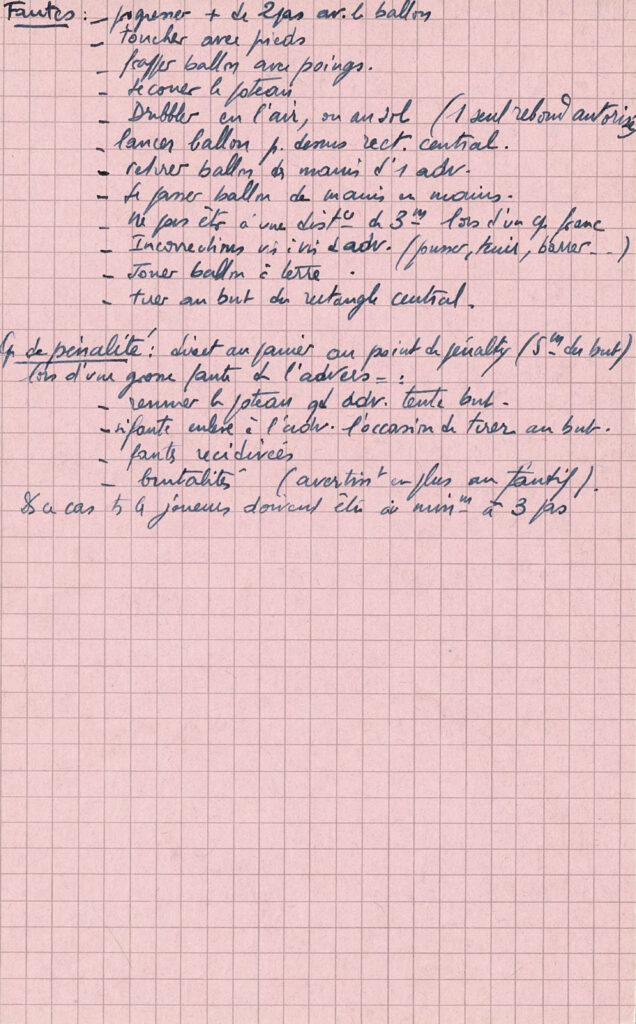 Fautes : - progresser + de 2 pas av. le ballon
- toucher avec pieds
- frapper ballon avec poings.
- secouer le poteau
- Dribbler en l'air, ou au sol (1 seul rebond autorisé
- lancer ballon p. dessus rect. central.
- retirer ballon des mains d'1 adv.
- se passer ballon de mains en mains.
- ne pas être à une distce de 3m lors d'un cp franc
- Incorrections vis à vis d'adv. (pousser, tenir, barrer...)
- Jouer ballon à terre.
- tirer au but du rectangle central.
Cp de pénalité : direct au panier au point de pénalty (5m du but)
lors d'une grosse faute de l'advers - :
- remuer le poteau qd adv. tente but.
- si faute enlève à l'adv. l'occasion de tirer au but.
- fautes récidivées
- brutalités (avertisst en plus au fautif).
Ds ce cas ts les joueurs doivent être au minm à 3 pas